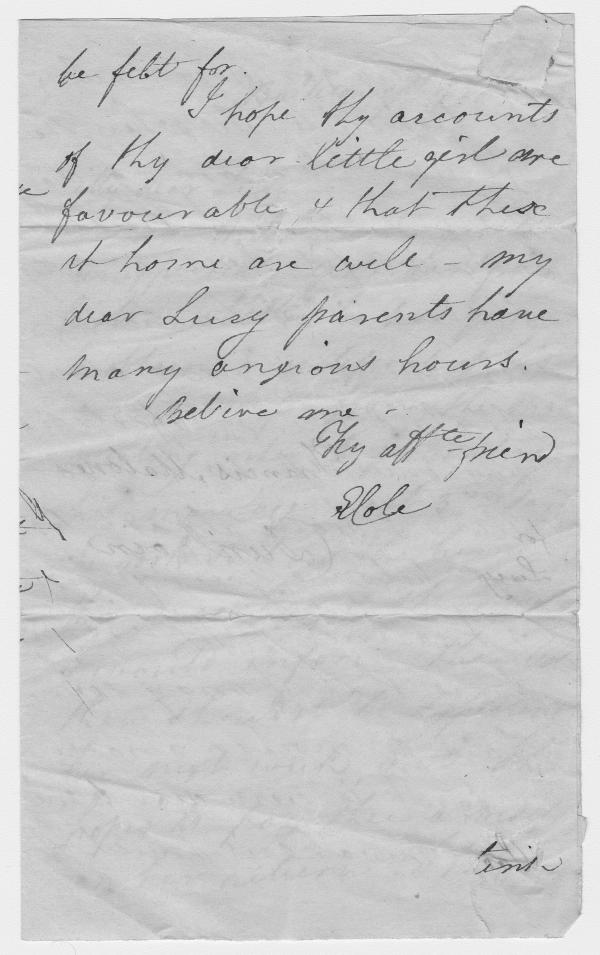 be felt for.
I hope thy accounts
of thy dear little girl are
favourable, & that those
at home are well - my
dear Lucy parents have
many anxious hours.
Believe me -
Thy affte friend